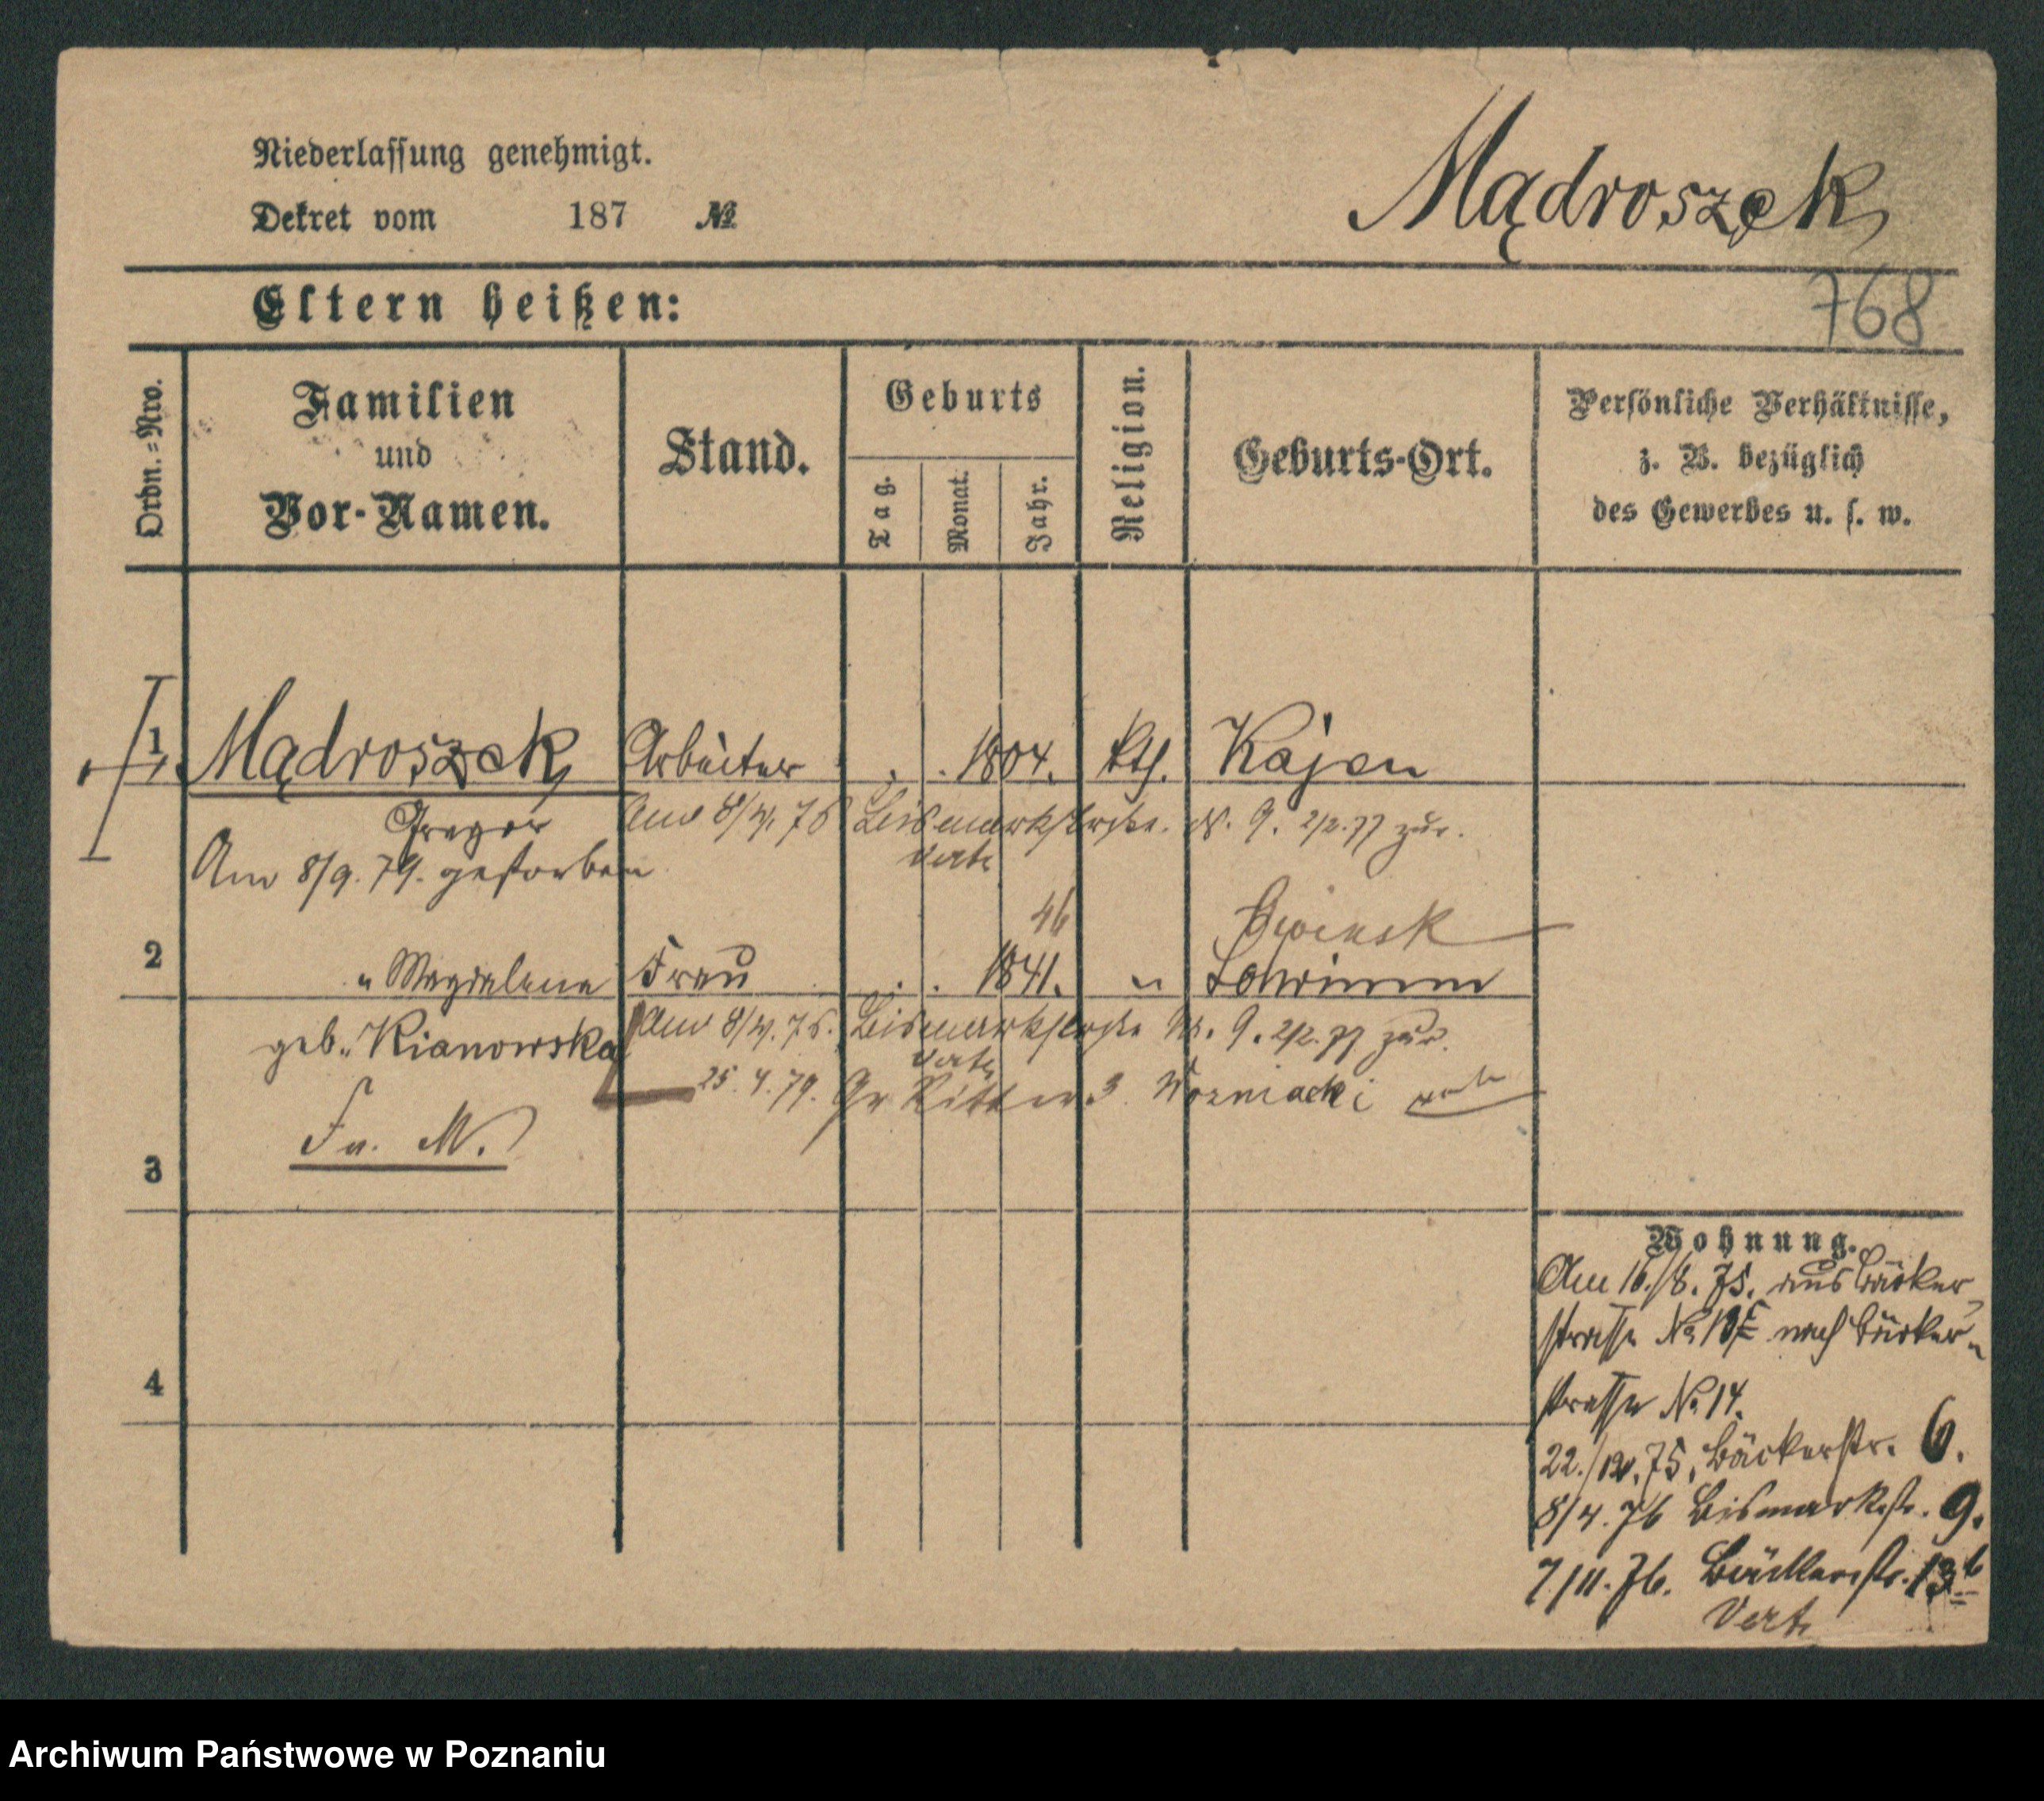 Niederlassung genehmigt.
Mądroszek
Dekret vom 187 №
Eltern heißen:
768
Ordn.=Nro.
Familien
und
Vor-Namen.
Stand.
Geburts
Tag.
Monat.
Jahr.
Religion.
Geburts-Ort.
Persönliche Verhältnisse,
z. B. bezüglich
des Gewerbes u. s. w.
1 Mądroszek Arbeiter . . 1804. kth. Kajen
Gregor Am 8/4. 76 Bismarkstraße. N. 9. 2/2.77 zur.
verte
Am 8/9. 79. gestorben
46
2 " Magdalena Frau . . 1841. "
geb. Kianowska Am 8/4. 76. Bismarkstraße N. 9. 2/2.77 zur.
verte
25. 4. 79. Gr Ritter 3. Wozniacki
Fr. M.
3
4
Wohnung.
Am 16./8. 75. aus Bäcker
strasse No nach Bäcker-
strasse No 14.
22./12. 75, Bäckerstr. 6.
8/4. 76 Bismarkstr. 9.
7/11. 76. Bäckerstr. 13b
Verte
Archiwum Państwowe w Poznaniu